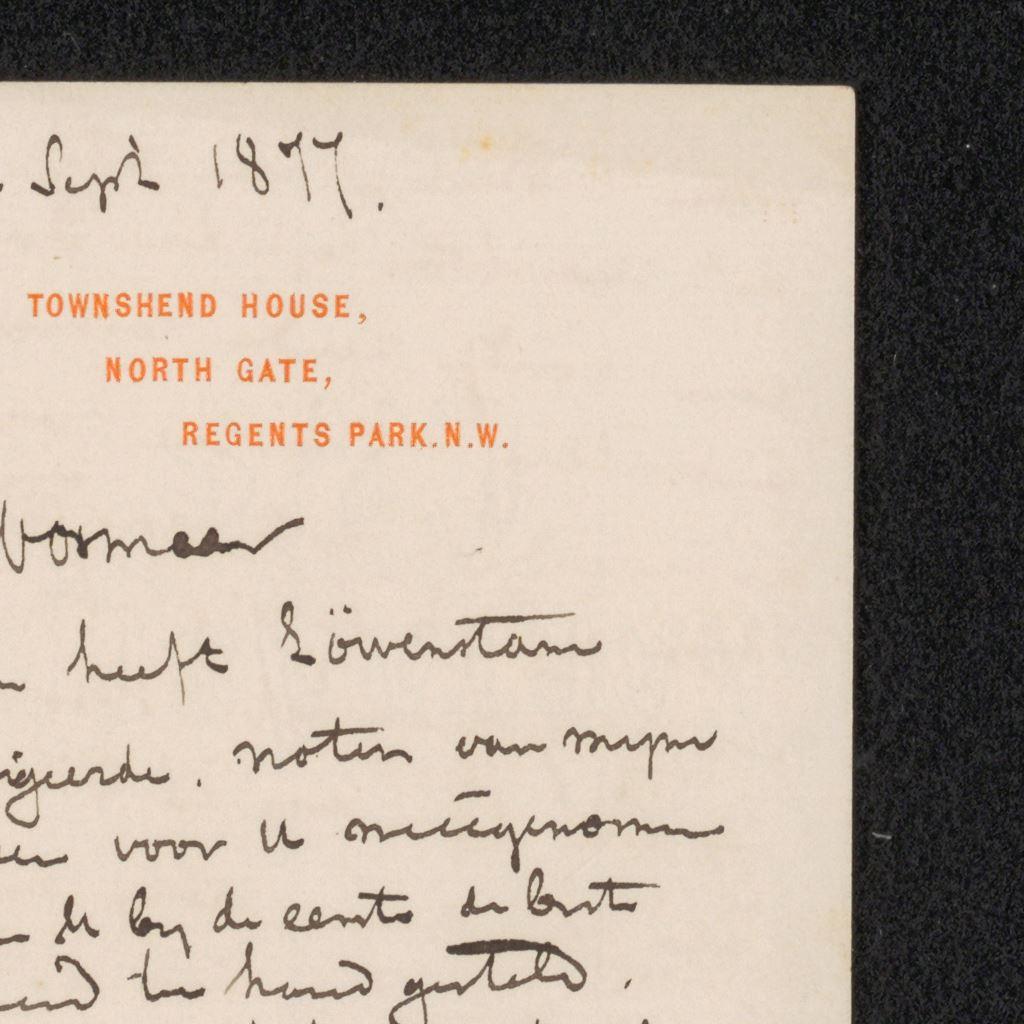 Sept 1877.
TOWNSHEND HOUSE,
NORTH GATE,
REGENTS PARK.N.W.
Vosmaer
heeft Löwenstam
igeerde. noten van mijne
voor U meegenomen
U by de eerste de beste
ter hand gesteld.